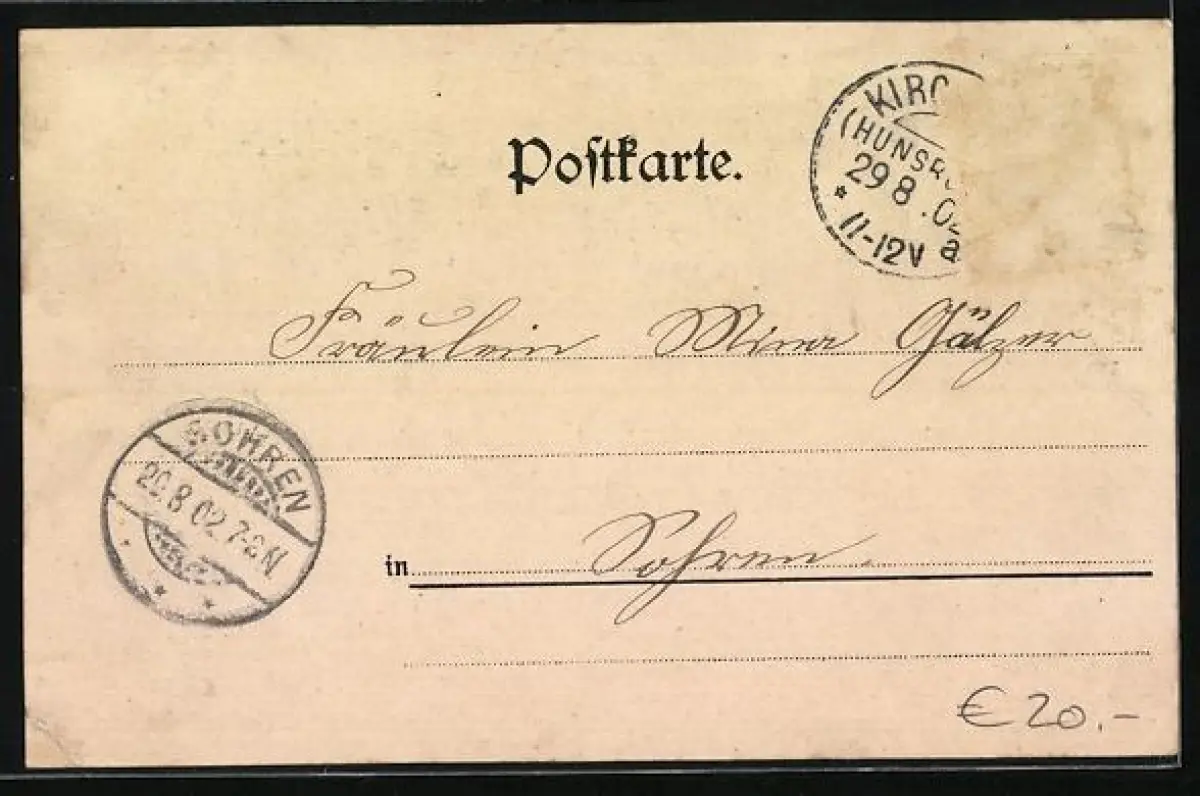 Postkarte.
KIRC
(HUNSR
29 8 .02
* 11-12V a
Fräulein Mina Gälzer
SOHREN
29.8.02.7-8N
in Sohren.
€ 20.-